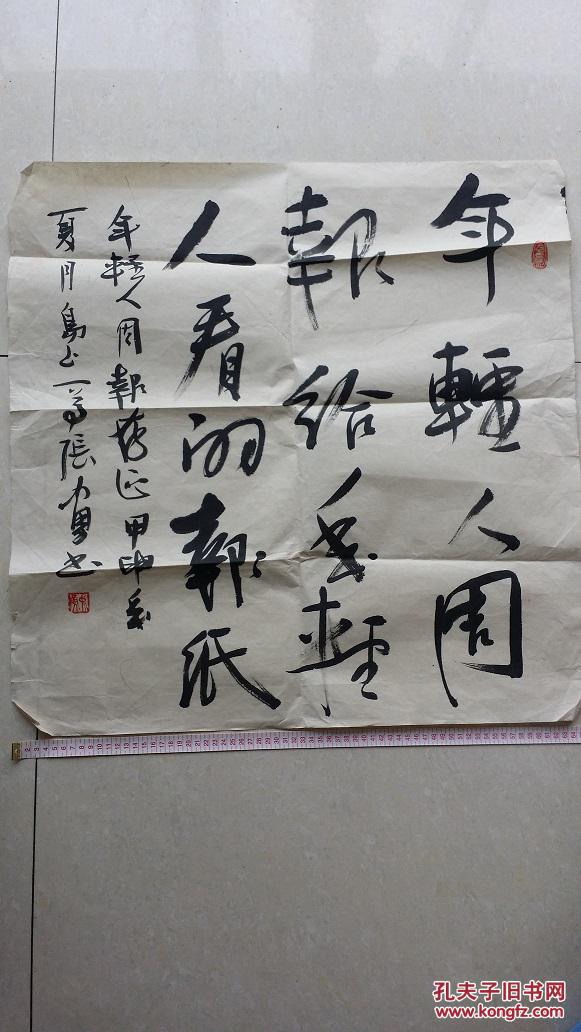 年輕人周
報給年輕
人看的報紙
年輕人周報 正 甲申年
夏月島上 張勇书
孔夫子旧书网
www.kongfz.com